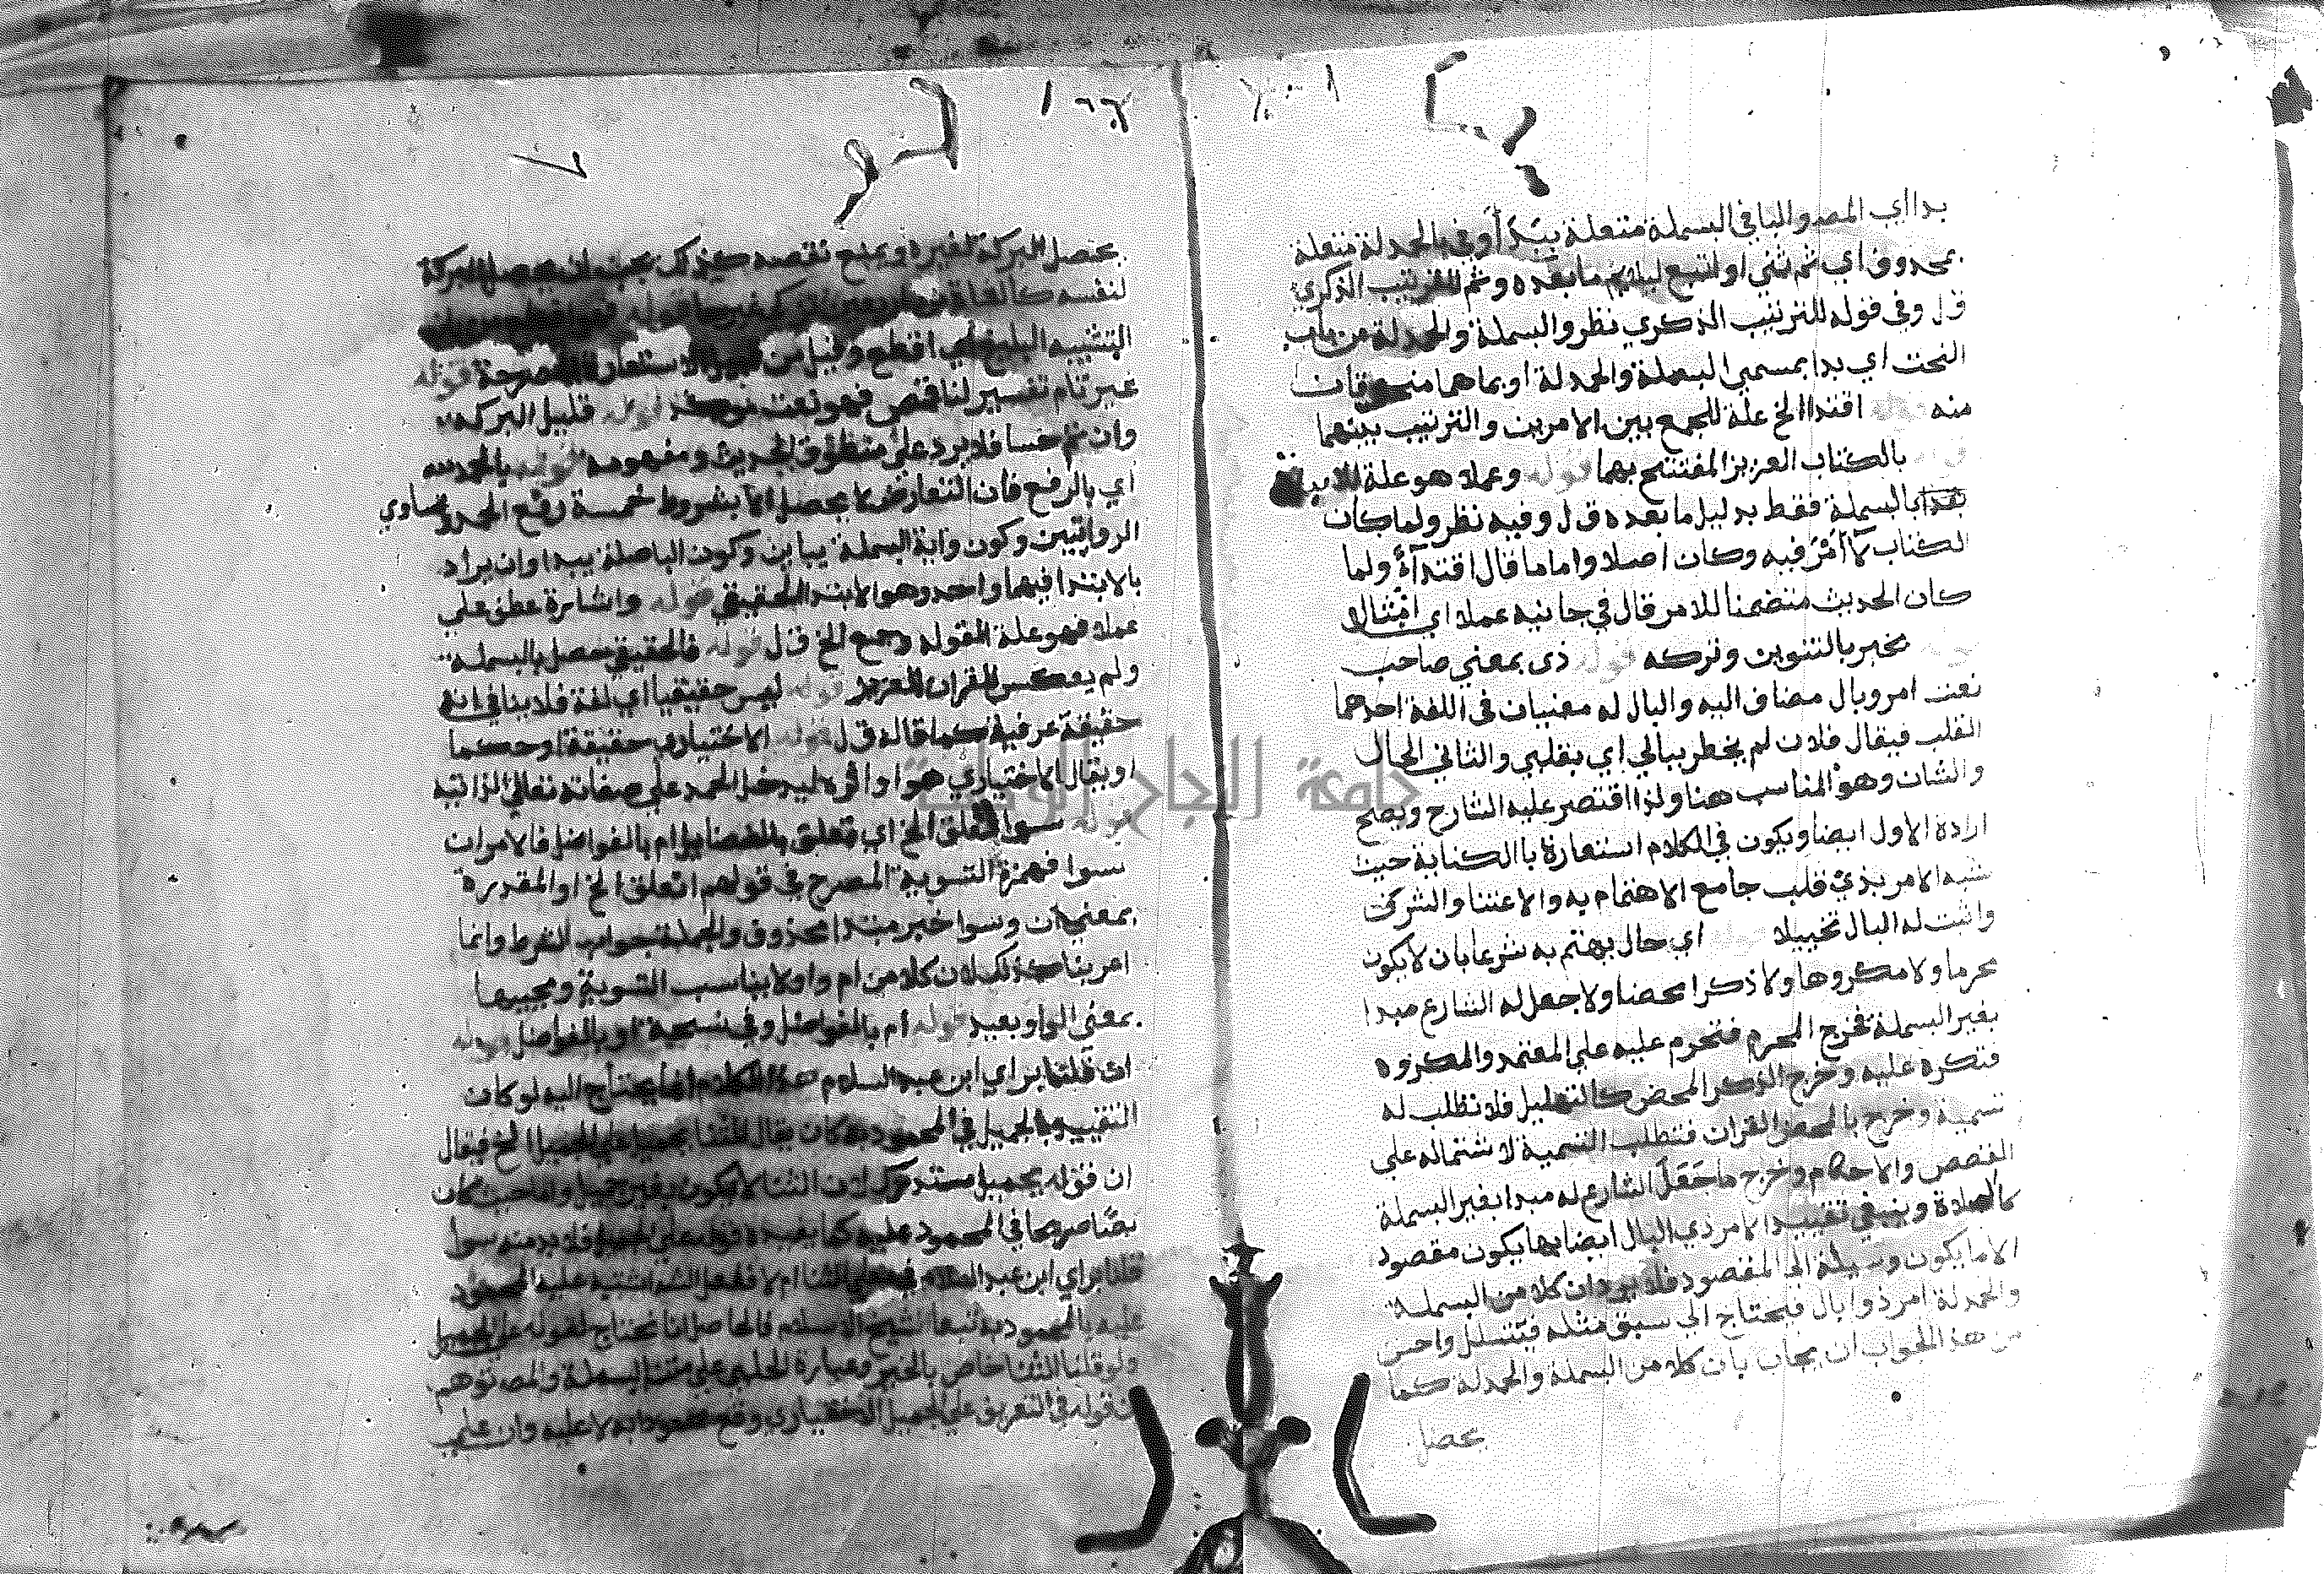 بدا اي المصـ والبا في البسملة متعلقة ببَدَأَ وفي بالحمدلة متعلقة
بمحذوف اي ثم ثني او اتبع ليلايم ما بعده وثم للترتيب الذكري
ق ل وفي قوله للترتيب الذكري نظر والبسملة والحمدلة من باب
النحت اي بدا بمسمي البسملة والحمدلة او بما هما منحوتان
منه قوله اقتدا الخ علة للجمع بين الامرين والترتيب بينهما
قوله بالكتاب العزيز المفتتح بهما قوله وعملا هو علة للابتدا
بالبسملة فقط بدليل ما بعده ق ل وفيه نظر ولما كان
الكتاب لا أمْرَ فيه وكان اصلا واماما قال اقتدآءً ولما
كان الحديث متضمنا للامر قال في جانبه عملا اي امتثالا
قوله بخبر بالتنوين وتركه قوله ذي بمعني صاحب
نعت امر وبال مضاف اليه والبال له معنيان في اللغة احدهما
القلب فيقال فلان لم يخطر ببالي اي بقلبي والثاني الحال
والشان وهو المناسب هنا ولذا اقتصر عليه الشارح ويصح
ارادة الاول ايضا ويكون في الكلام استعارة باالكناية حيث
شبه الامر بذي قلب بجامع الاهتمام به والاعتنا والشرف
واثبت له البال تخييلا قوله اي حال يهتم به شرعا بان لا يكون
محرما ولا مكروها ولا ذكرا محضا ولا جعل له الشارع مبدا
بغير البسملة فخرج المحرم فتحرم عليه علي المعتمد والمكروه
فتكره عليه وخرج الذكر المحض كالتهليل فلا تطلب له
تسمية وخرج بالمحض القران فتطلب التسمية لاشتماله علي
القصص والاحكام وخرج ما جَعَلَ الشارع له مبدا بغير البسملة
كالصلاة وينبغي تقييد الامر ذي البال ايضا بما يكون مقصود
الا ما يكون وسيلة الي المقصود فلا يرد ان كلا من البسملة
والحمدلة امر ذوا بال فيحتاج الي سبق مثله فيتسلل واحسن
من هذا الجواب ان يجاب بان كلا من البسملة والحمدلة كما
يحصل
يحصل البركة لغيره ويمنع نقصه كذلك يجب ان يحصل البركة
لنفسه كالشاة من اربعين
التشبيه البليغ اي اقطع وقيل من الاستعارة المصرحة قوله
غير تام تفسير لناقص فهو نعت موكد قوله قليل البركة
وان تم حسا فلا يرد علي منطوق الحديث ومفهومه قوله بالحمدلله
اي بالرفع فان التعارض لا يحصل الا بشروط خمسة رفع الحمد وتساوي
الروايتين وكون رواية البسملة بباين وكون الباصلة يبدا وان يراد
بالابتدا فيهما واحد وهو الابتدا الحقيقي قوله واشارة عطف علي
عملا فهو علة لقوله وجمع الخ ق ل قوله فالحقيقي حصل بالبسملة
ولم يعكس للقران العزيز قوله ليس حقيقيا اي لغة فلا ينافي انه
حقيقة عرفية كما قاله ق ل قوله الاختياري حقيقة او حكما
او يقال الاختياري هو او اثره ليدخل الحمد علي صفاته تعالي الذاتية
قوله سوا تعلق الخ اي تعلق بالفضايل ام بالفواضل فالامران
سوا فهمزة التسوية المصرح في قولهم اتعلق الخ او المقدرة
بمعني ان وسوا خبر مبتدا محذوف والجملة جواب الشرط وانما
اعربنا كذلك لان كلا من ام واو لا يناسب التسوية ومجيبها
بمعني الواو بعيد قوله ام بالفواضل وفي نسخة او بالفواضل قوله
ان قلنا براي ابن عبد السلام هذا الكلام انما يحتاج اليه لو كان
التقييد بالجميل في المحمود به كان يقال الثنا بجميل علي الجميل الخ فيقال
ان قوله بجميل مستدرك لان الثنا لا يكون بغير جميل ولما حب كان
نصا صريحا في المحمود عليه كما يفيده قوله علي الجميل فلا بد منه سوا
قلنا براي ابن عبد السلام في الثنا ام لا فلعل الشـ اشتبه عليه المحمود
عليه بالمحمود به تبعا لشيخ الاسلام فالحاصل انا نحتاج لقوله علي الجميل
ولو قلنا الثنا خاص بالخير وعبارة الحلبي علي متن البسملة والمصـ توهم
ان قوله في التعريف علي الجميل الاختياري وقع محمودا به لا عليه وان علي
جامعة النجاح الوطنية